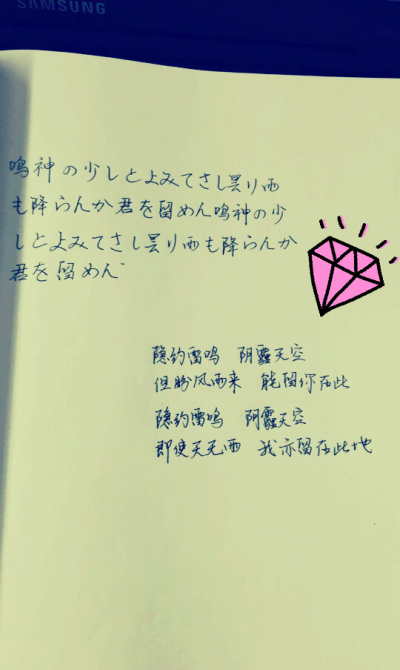 SAMSUNG
鸣神の少しとよみてさし曇り雨
も降らんか君を留めん鸣神の少
しとよみてさし曇り雨も降らんか
君を留めん
隐约雷鸣 阴霾天空
但盼风雨来 能留你在此
隐约雷鸣 阴霾天空
即使天无雨 我亦留在此地